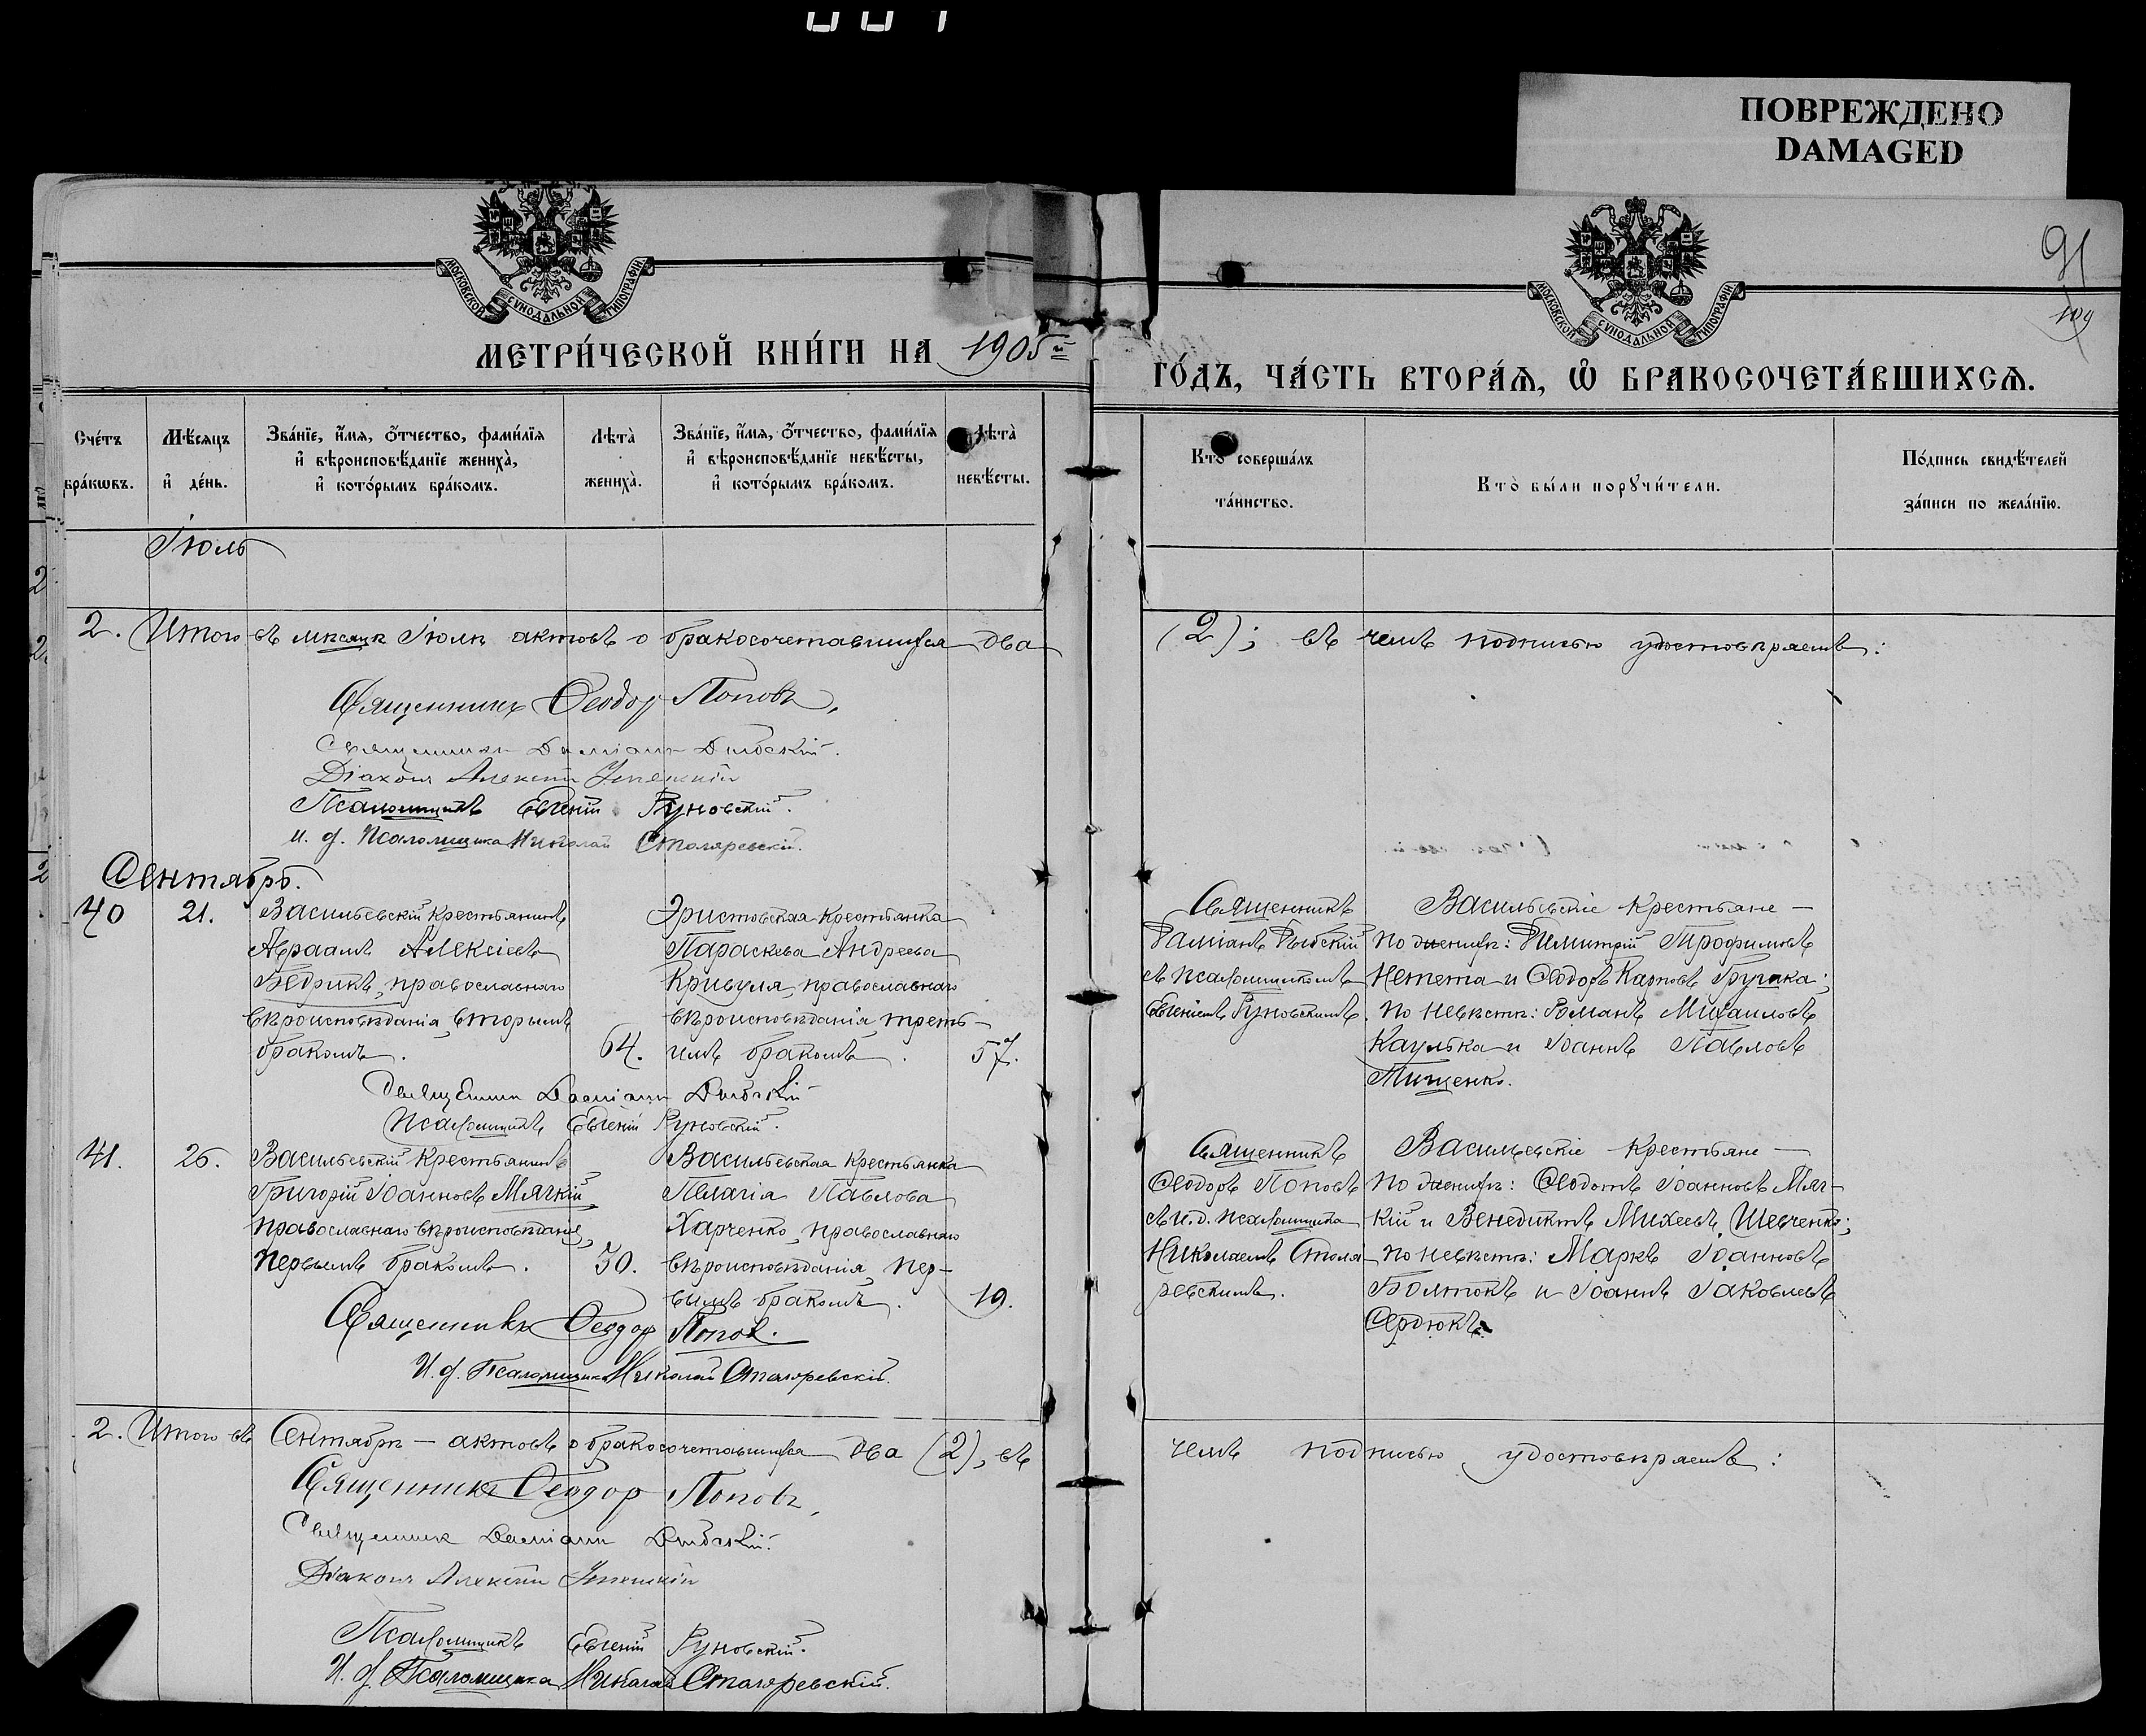 ПОВРЕЖДЕНО
DAMAGED
МОСКОВСКОЙ СѴНОДАЛЬНОЙ ТИПОГРАФІИ
МОСКОВСКОЙ СѴНОДАЛЬНОЙ ТИПОГРАФІИ
91
109
МЕТРИ́ЧЕСКОЙ КНИ́ГИ НА 1905й
ГО́ДЪ, ЧА́СТЬ ВТОРА́Ѧ, Ѡ҆ БРАКОСОЧЕТА́ВШИХСѦ.
Сче́тъ бра́кѡвъ.
Мѣ́сяцъ и҆ де́нь.
Зва́нїе, и҆́мя, ѻ҆́тчество, фами́лїя
и҆ вѣроисповѣ́данїе жениха̀,
и҆ кото́рымъ бра́комъ.
Лѣта̀ жениха̀.
Зва́нїе, и҆́мя, ѻ҆́тчество, фами́лїя
и҆ вѣроисповѣ́данїе невѣ́сты,
и҆ кото́рымъ бра́комъ.
Лѣта̀ невѣ́сты.
Кто̀ соверша́лъ
та́инство.
Кто̀ бы́ли порꙋчи́тели.
По́дпись свидѣ́телей
за́писи по жела́нїю.
Іюль
2. Итого въ мѣсяцѣ Іюлѣ актовъ о бракосочетавшихся два
(2); въ чемъ подписью удостовѣряемъ:
Священникъ Ѳеодоръ Поповъ,
Священникъ Даміанъ
Діаконъ Алексѣй
Псаломщикъ Евгеній Руновскій.
и. д. Псаломщика Николай Столяревскій.
Сентябрь.
40 21. Васильевскій крестьянинъ
Авраамъ Алексіевъ
Бедрикъ, православнаго
вѣроисповѣданія, вторымъ
бракомъ. 64.
Эристовская крестьянка
Параскева Андреева
Кривуля, православнаго
вѣроисповѣданія, треть-
имъ бракомъ. 57.
Священникъ
Даміанъ
съ псаломщикомъ
Евгеніемъ Руновскимъ.
Васильевскіе крестьяне —
по женихѣ: Димитрій Трофимовъ
Нетета и Ѳеодоръ Карповъ
по невѣстѣ: Романъ Михаиловъ
Каулька и Іоаннъ Павловъ
Тищенко.
Священникъ Даміанъ
Псаломщикъ Евгеній Руновскій.
41. 25. Васильевскій крестьянинъ
Григорій Іоанновъ Мягкій,
православнаго вѣроисповѣданія,
первымъ бракомъ. 30.
Васильевская крестьянка
Пелагія Павлова
Харченко, православнаго
вѣроисповѣданія, пер-
вымъ бракомъ. 19.
Священникъ
Ѳеодоръ Поповъ
съ и. д. псаломщика
Николаемъ Столя-
ревскимъ.
Васильевскіе крестьяне —
по женихѣ: Ѳеодотъ Іоанновъ Мяг-
кій и Венедиктъ Михеевъ Шевченко;
по невѣстѣ: Маркъ Іоанновъ
Болтокъ и Іоаннъ Іаковлевъ
Сердюкъ.
Священникъ Ѳеодоръ Попов.
И. д. Псаломщика Николай Столяревскій.
2. Итого въ Сентябрѣ — актовъ о бракосочетавшихся два (2), въ
чемъ подписью удостовѣряемъ:
Священникъ Ѳеодоръ Поповъ,
Священник Даміанъ
Діаконъ Алексѣй
Псаломщикъ Евгеній Руновскій.
И. д. Псаломщика Николай Столяревскій.